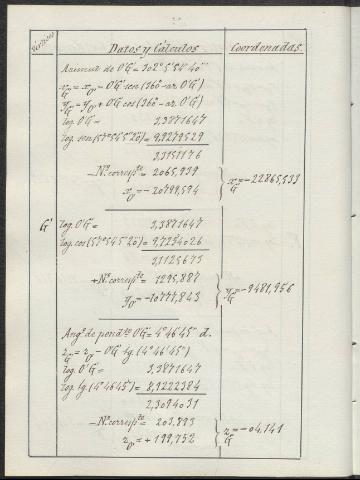 Vértices
Datos y Cálculos
Coordenadas
Azimut de O'G' = 302° 5' 54' 40"
x_G' = x_o' - O'G' sen (360 - az. O'G')
y_G' = y_o' + O'G' cos (360 - az. O'G')
log. O'G' = 3,3871647
log. sen (57° 54' 5" 20) = 9,9279529
3,3151176
- N.º corresp.te = 2065,939
x_o' = - 20799,594
x_G' = - 22865,533
G'
log. O'G' = 3,3871647
log. cos (57° 54' 5" 20) = 9,7254026
3,1125673
+ N.º corresp.te = 1295,887
y_o' = - 10777,843
y_G' = - 9481,956
Ang.º de pend.te O'G' = 4° 46' 45" d.
z_G' = z_o' - O'G' tg. (4° 46' 45")
log. O'G' = 3,3871647
log. tg. (4° 46' 45") = 8,9222384
2,3094031
- N.º corresp.te = 203,893
z_o' = + 199,752
z_G' = - 04,141